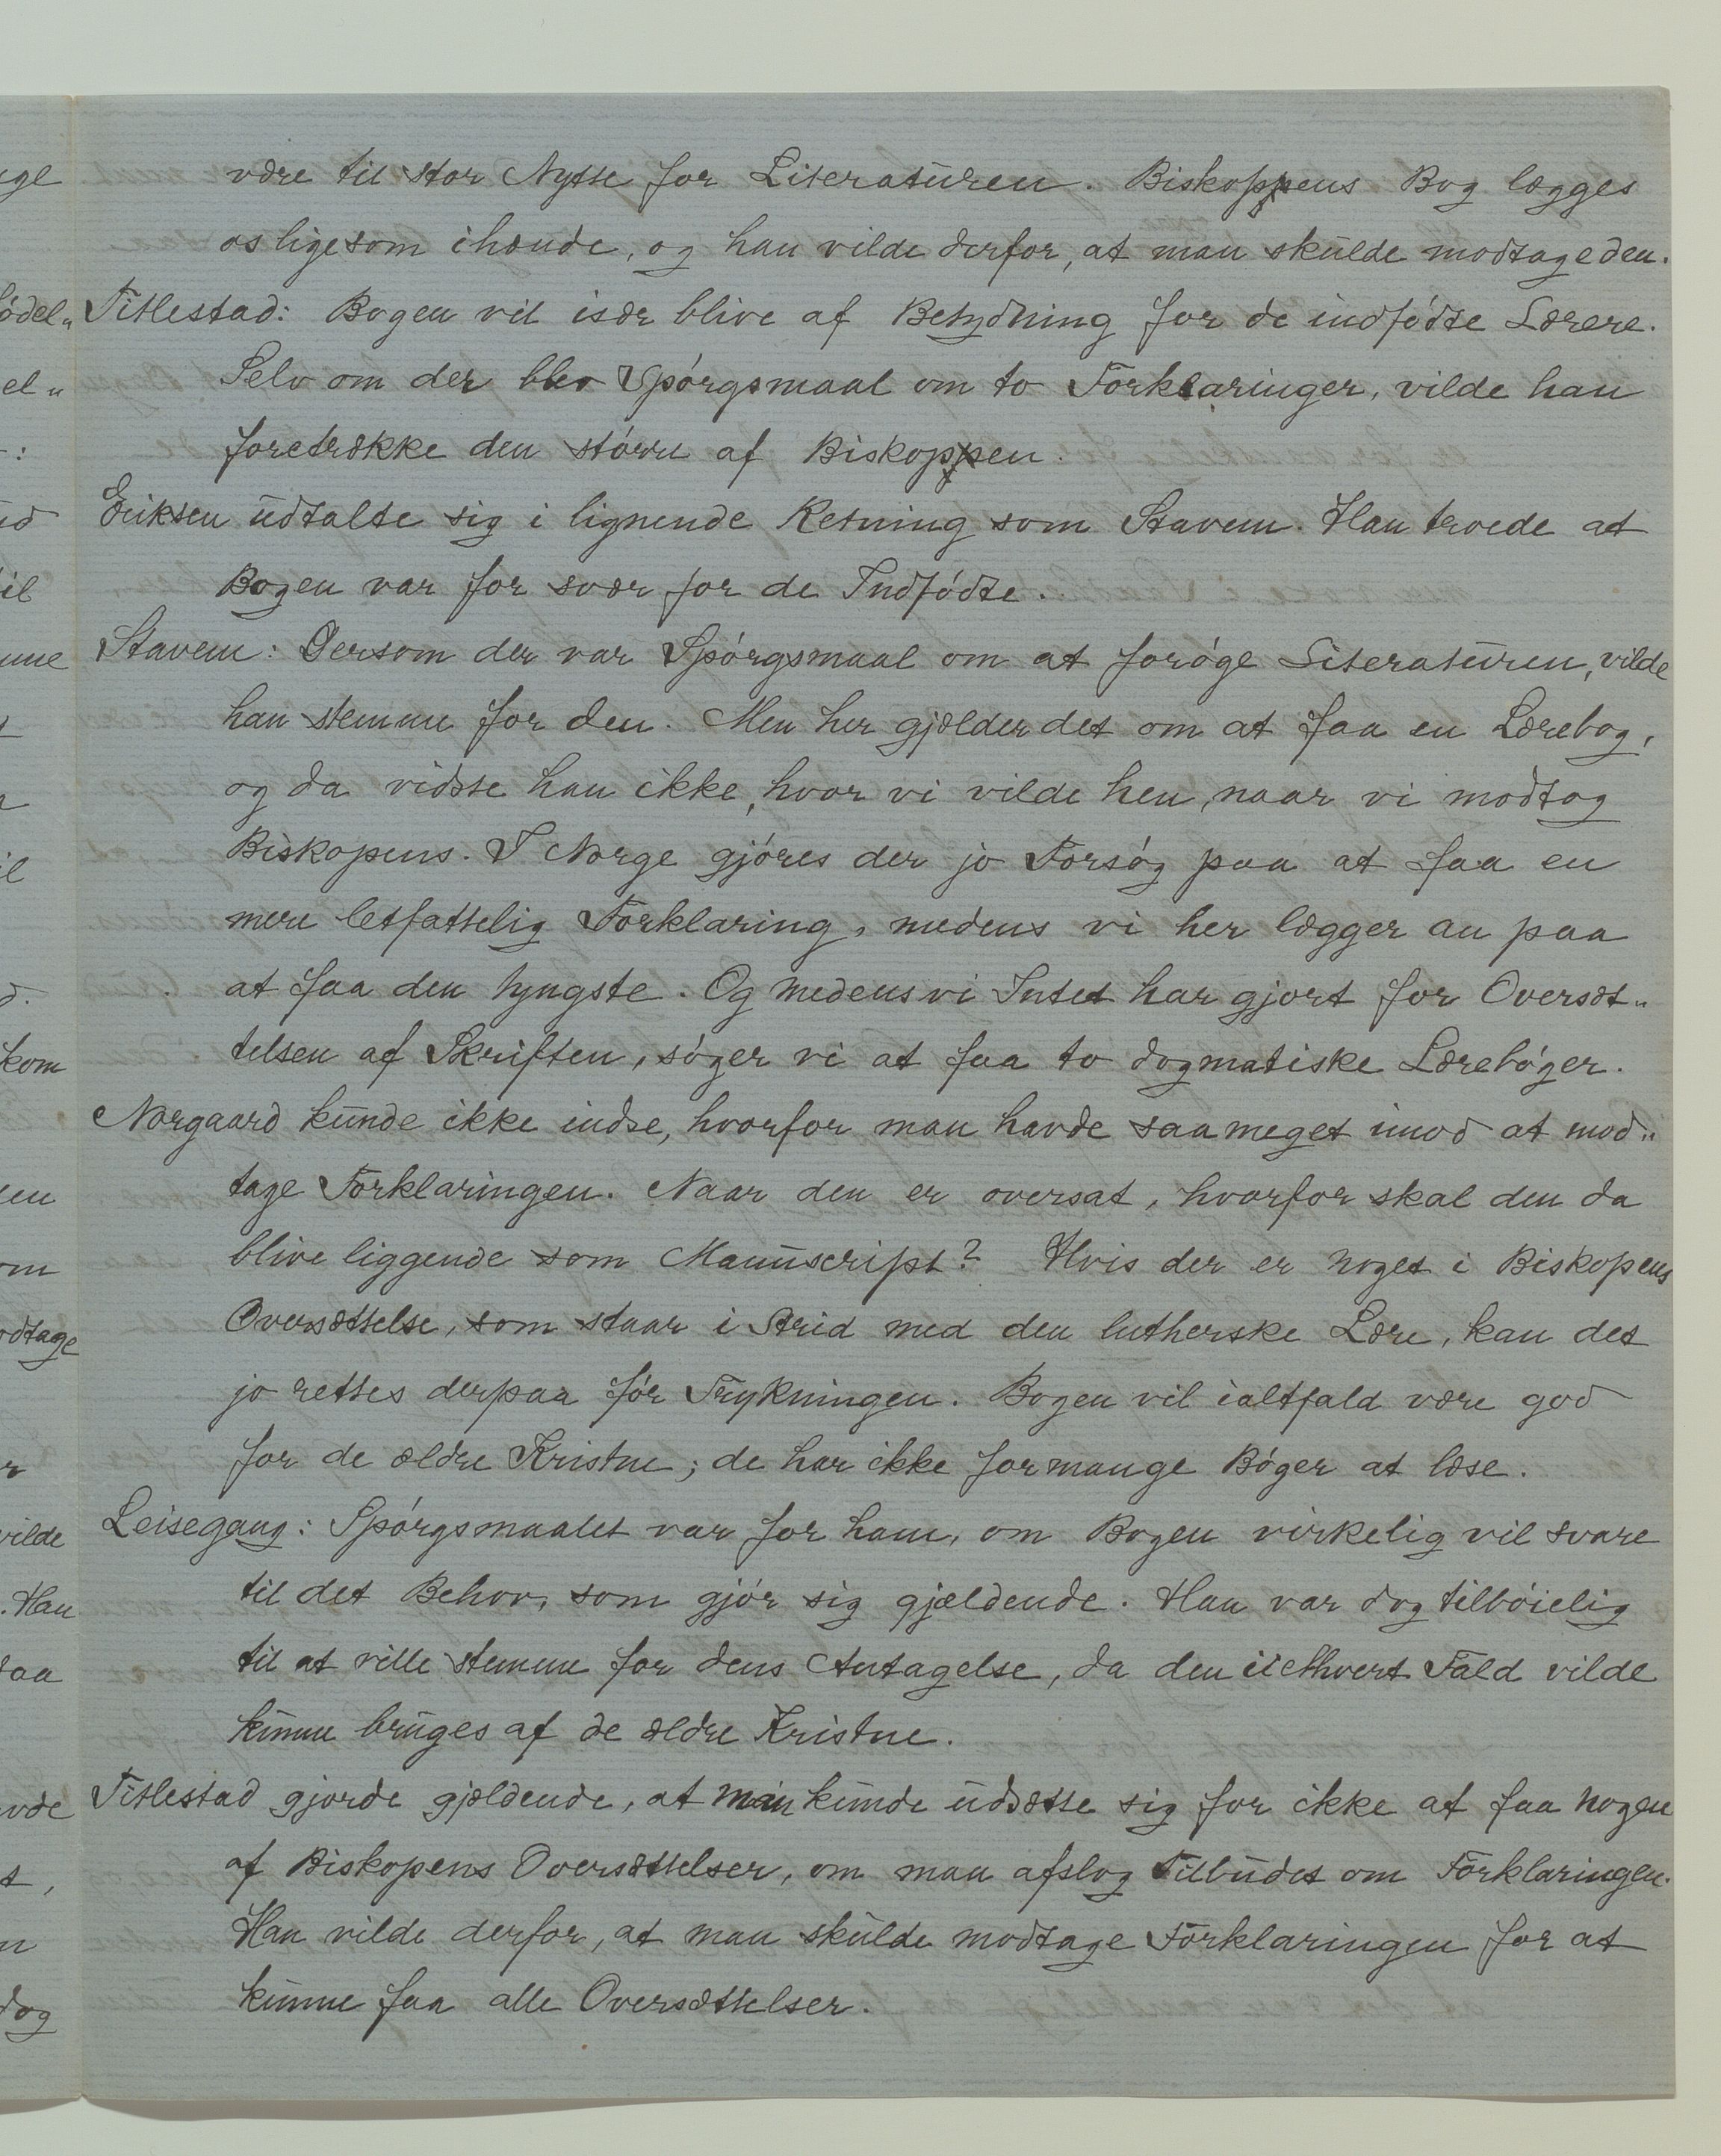 være til stor Nytte for Literaturen. Biskopens Bog lægges
os ligesom ihænde, og han vilde derfor, at man skulde modtage den.
Titlestad: Bogen vil især blive af Betydning for de indfødte Lærere.
Selv om der blev Spørgsmaal om to Forklaringer, vilde han
foretrække den større af Biskopen.
Eriksen udtalte sig i lignende Retning som Stavem. Han troede at
Bogen var for svær for de Indfødte.
Stavem: Dersom der var Spørgsmaal om at forøge Literaturen, vilde
han stemme for den. Men her gjælder det om at faa en Lærebog,
og da vidste han ikke, hvor vi vilde hen, naar vi modtog
Biskopens. I Norge gjøres der jo Forsøg paa at faa en
mere letfattelig Forklaring, medens vi her lægger an paa
at faa den tyngste. Og medens vi Intet har gjort for Oversæt-
telsen af Skriften, søger vi at faa to dogmatiske Lærebøger.
Norgaard kunde ikke indse, hvorfor man havde saameget imod at mod-
tage Forklaringen. Naar den er oversat, hvorfor skal den da
blive liggende som Manuscript? Hvis der er noget i Biskopens
Oversættelse, som staar i Strid med den lutherske Lære, kan det
jo rettes derpaa før Trykningen. Bogen vil ialtfald være god
for de ældre Kristne; de har ikke formange Bøger at læse.
Leisegang: Spørgsmaalet var for ham, om Bogen virkelig vil svare
til det Behov, som gjør sig gjældende. Han var dog tilbøielig
til at ville stemme for dens Antagelse, da den i ethvert Fald vilde
kunne bruges af de ældre Kristne.
Titlestad gjorde gjældende, at man kunde udsætte sig for ikke at faa nogen
af Biskopens Oversættelser, om man afslog Tilbudet om Forklaringen.
Han vilde derfor, at man skulde modtage Forklaringen for at
kunne faa alle Oversættelser.